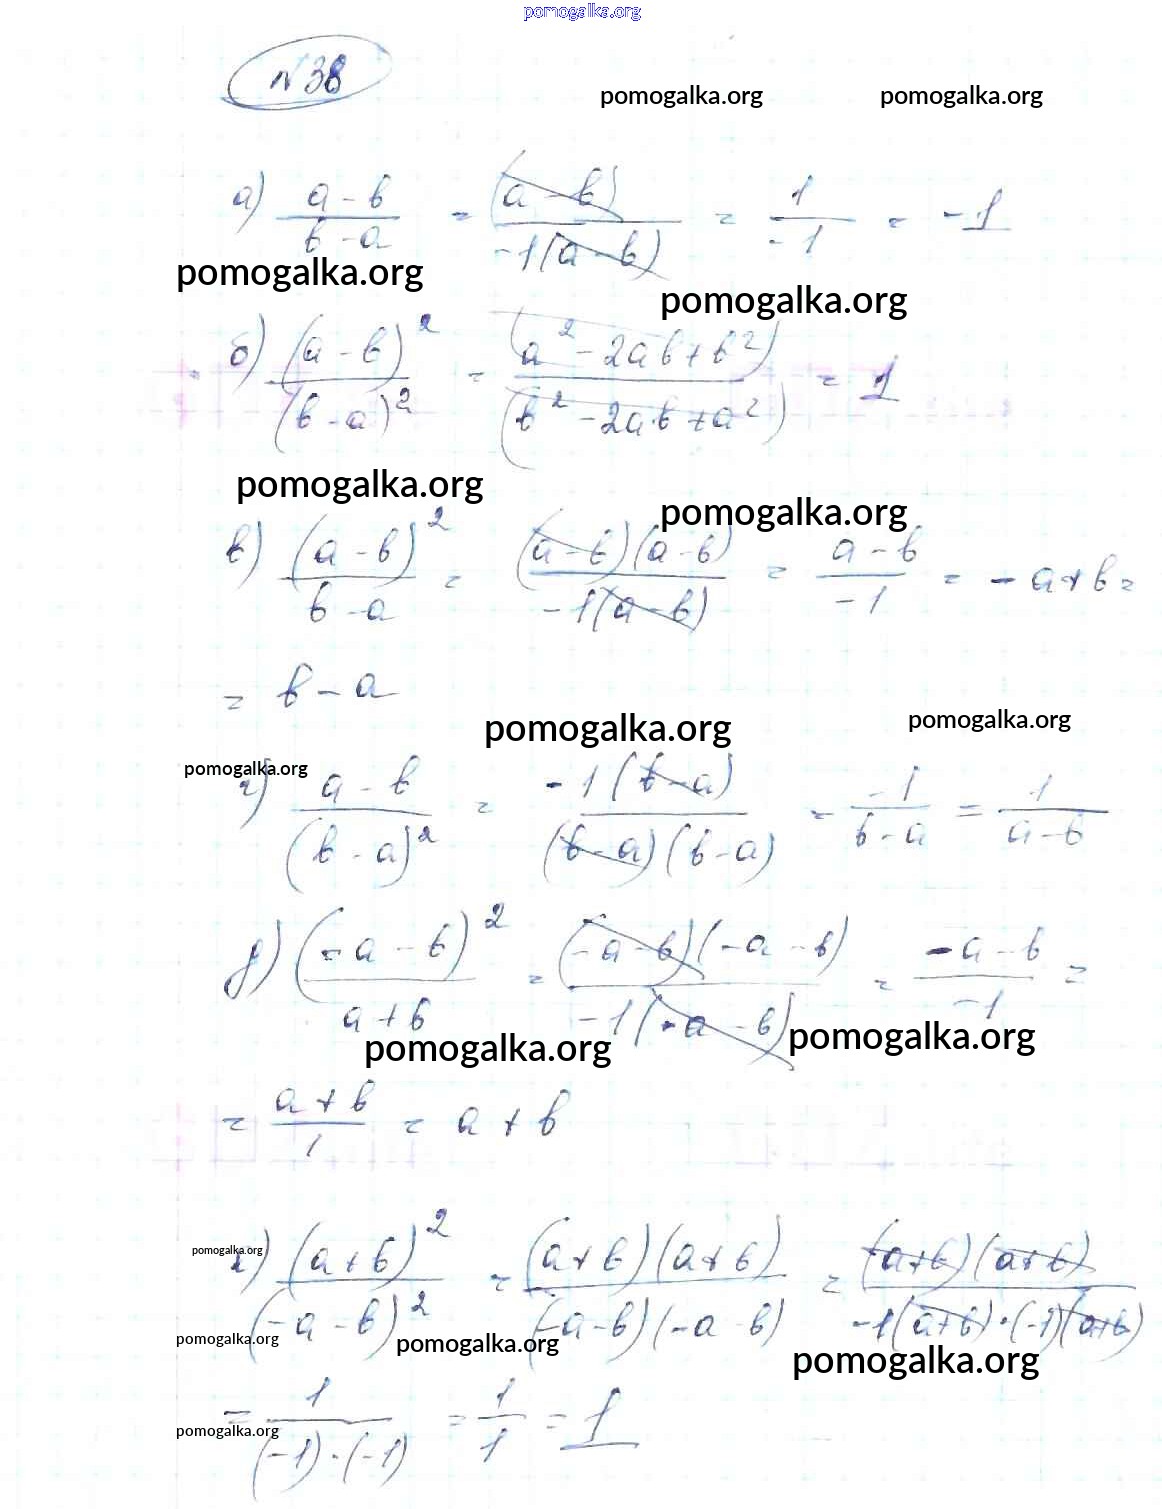 pomogalka.org
N 38
pomogalka.org pomogalka.org
а) (a - b)/(b - a) = (a - b)/(-1(a - b)) = 1/(-1) = -1
pomogalka.org
pomogalka.org
б) (a - b)²/(b - a)² = (a² - 2ab + b²)/(b² - 2a·b + a²) = 1
pomogalka.org
pomogalka.org
в) (a - b)²/(b - a) = (a - b)(a - b)/(-1(a - b)) = (a - b)/(-1) = - a + b =
= b - a
pomogalka.org pomogalka.org
pomogalka.org
г) (a - b)/(b - a)² = -1(b - a)/((b - a)(b - a)) = -1/(b - a) = 1/(a - b)
д) (-a - b)²/(a + b) = (-a - b)(-a - b)/(-1(-a - b)) = (-a - b)/(-1) =
pomogalka.org pomogalka.org
= (a + b)/1 = a + b
pomogalka.org
(a + b)²/(-a - b)² = (a + b)(a + b)/((-a - b)(-a - b)) = (a + b)(a + b)/(-1(a + b)·(-1)(a + b))
pomogalka.org pomogalka.org
pomogalka.org
= 1/((-1)·(-1)) = 1/1 = 1
pomogalka.org